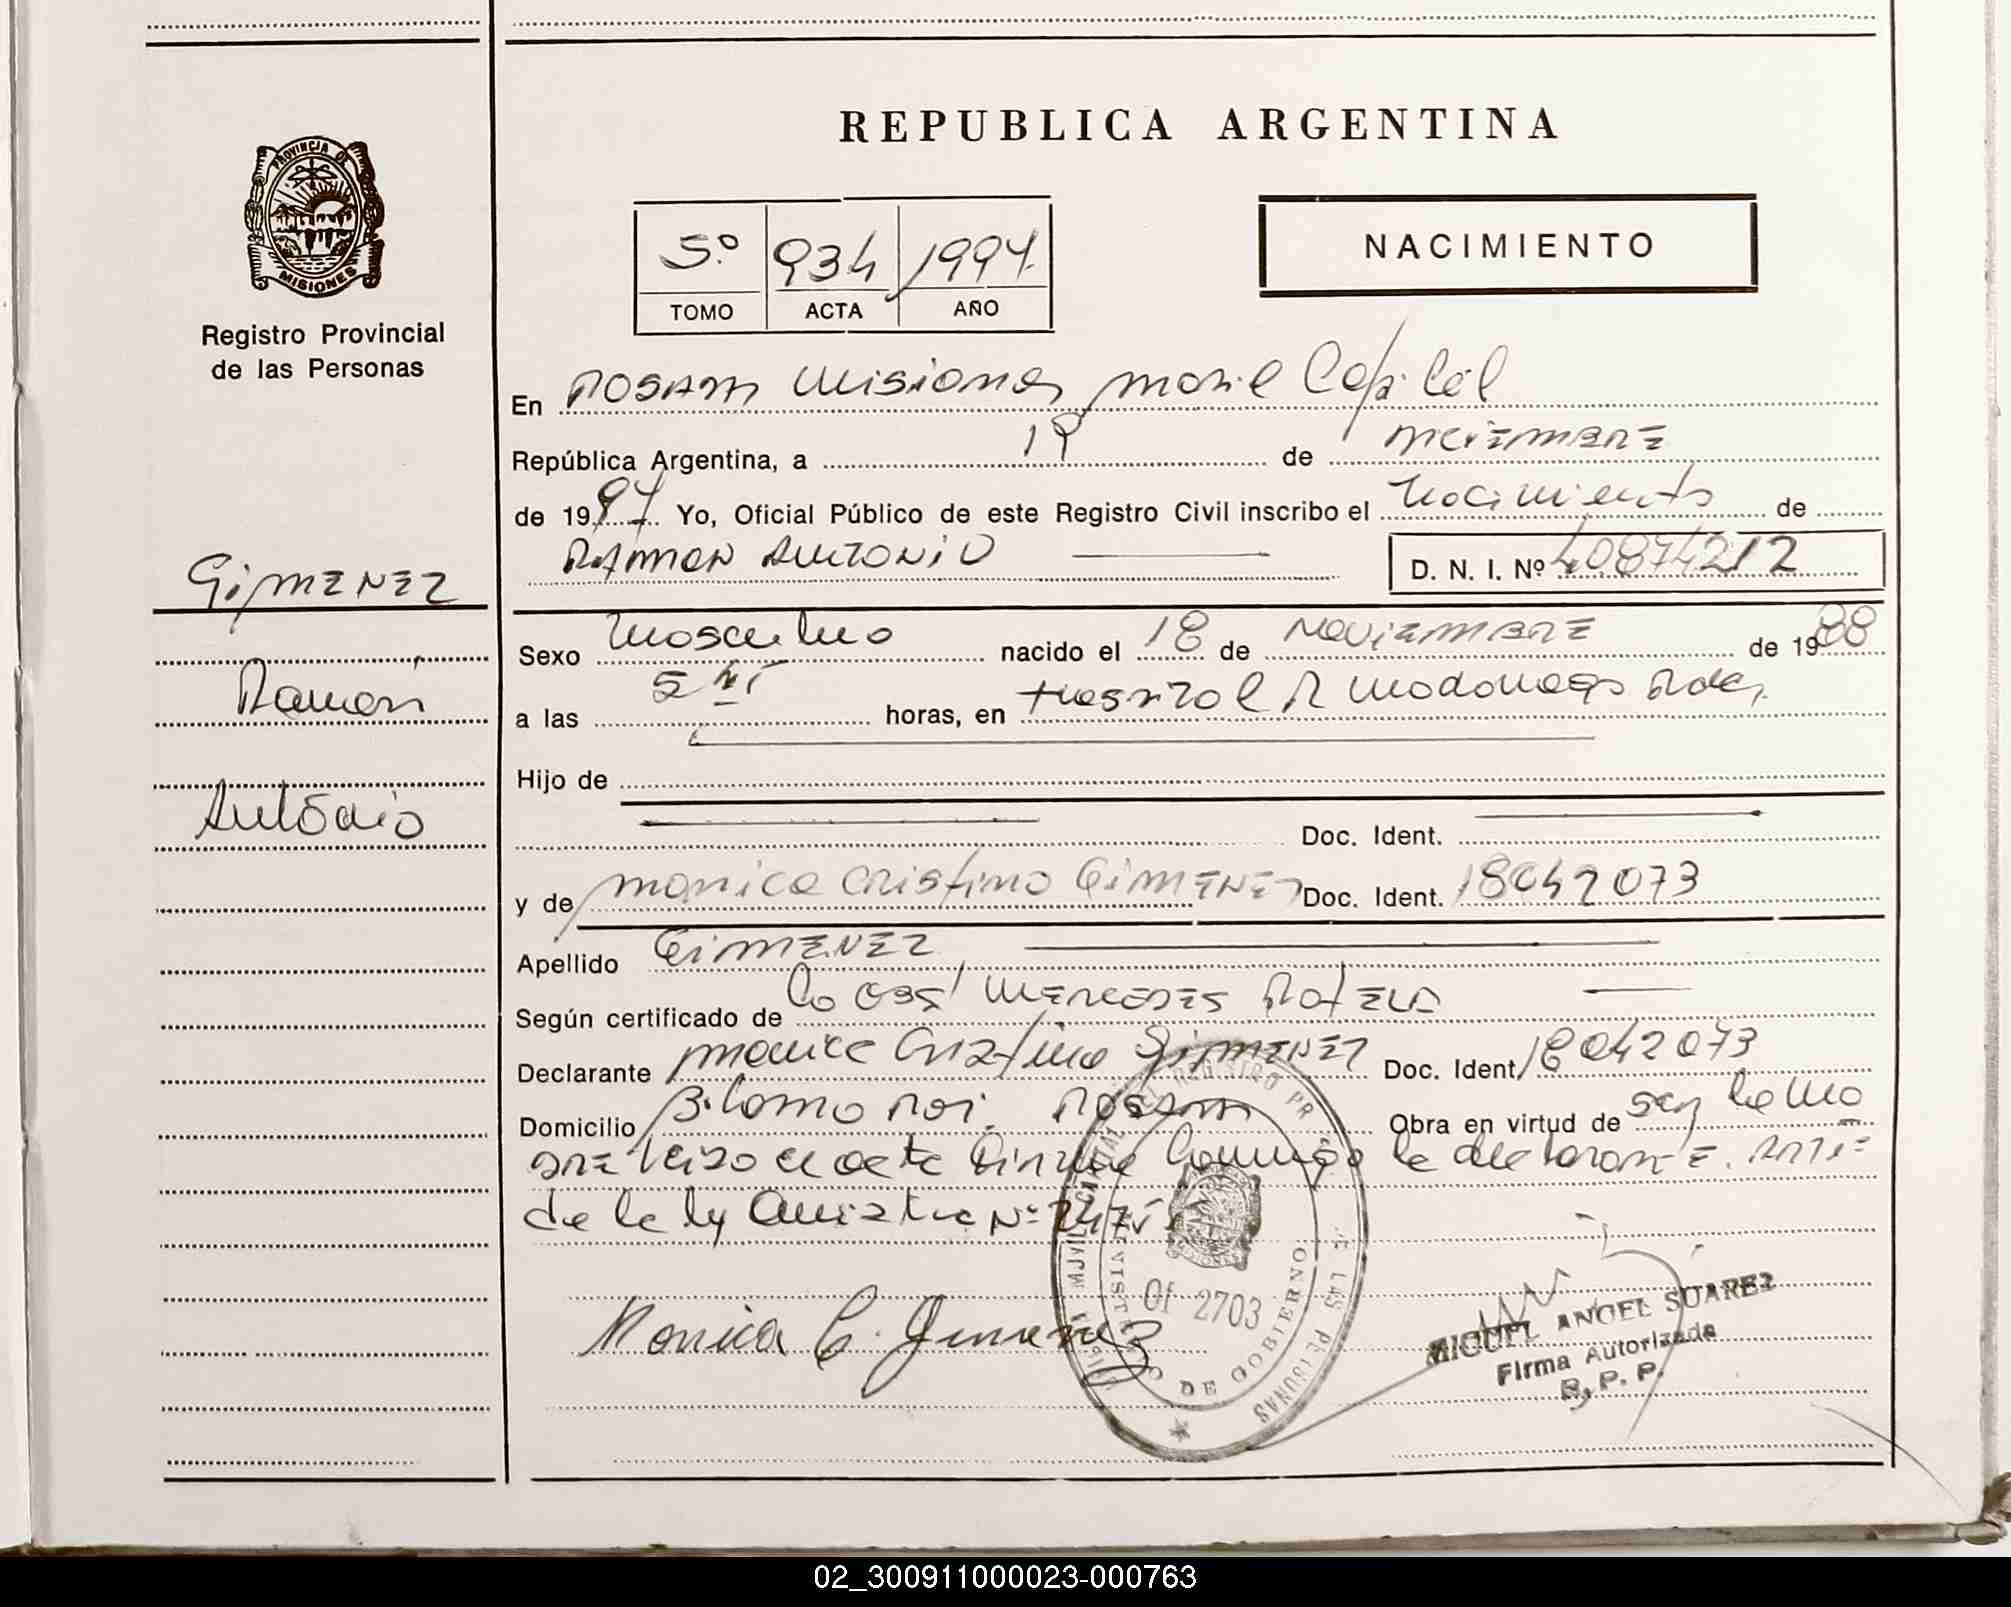 PROVINCIA DE
MISIONES
Registro Provincial
de las Personas
REPUBLICA ARGENTINA
5º 934 1994
TOMO ACTA AÑO
NACIMIENTO
En Posadas Misiones Movil Capital
República Argentina, a 19 de Diciembre
de 1994 Yo, Oficial Público de este Registro Civil inscribo el Nacimiento de
Ramon Antonio
D. N. I. Nº 40874212
GIMENEZ
Ramon
Antonio
Sexo Masculino nacido el 18 de Noviembre de 1988
a las 5 horas, en Hospital R Madariaga Pdas,
Hijo de
Doc. Ident.
y de Monica Cristina GIMENEZ Doc. Ident. 18042073
Apellido GIMENEZ
Según certificado de la Obst Mercedes
Declarante Monica Cristina GIMENEZ Doc. Ident 18042073
Domicilio Posadas Obra en virtud de
la declarante
de la ley Nº
REGISTRO
DE LAS PERSONAS
MINISTERIO DE GOBIERNO
Of 2703
Monica C. Gimenez
MIGUEL ANGEL SUAREZ
Firma Autorizada
R. P. P.
02_300911000023-000763